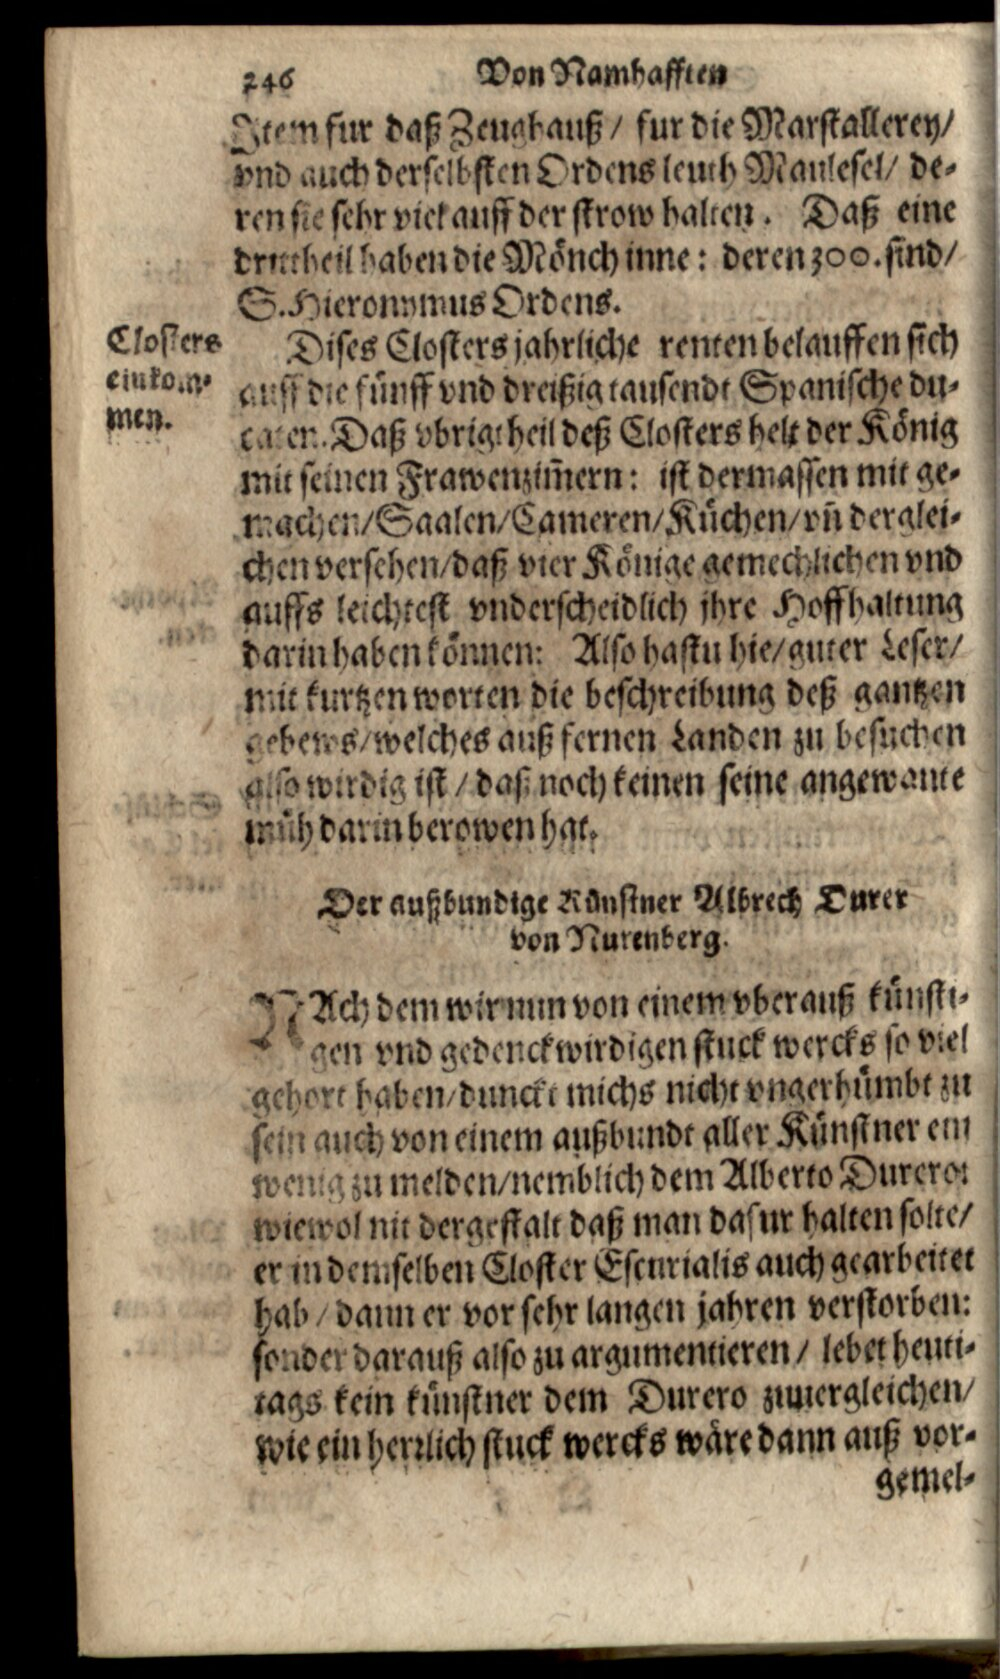 246 Von Namhafften
Item fur daß Zeughauß / fur die Marstallerey/
vnd auch derselbsten Ordens leuth Maulesel/ de-
ren sie sehr viel auff der strow halten. Daß eine
drittheil haben die Mönch inne: deren 300. sind/
S. Hieronymus Ordens.
Closters
einkom-
men.
Dises Closters jahrliche renten belauffen sich
auff die fünff vnd dreißig tausendt Spanische du-
caten. Daß vbrig theil deß Closters helt der König
mit seinen Frawenzim̃ern: ist dermassen mit ge-
machen/Saalen/Cameren/Küchen/vñ derglei-
chen versehen/daß vier Könige gemechlichen vnd
auffs leichtest vnderscheidlich jhre Hoffhaltung
darin haben können: Also hastu hie/guter Leser/
mit kurtzen worten die beschreibung deß gantzen
gebews/welches auß fernen Landen zu besuchen
also wirdig ist / daß noch keinen seine angewante
müh darin berowen hat.
Der außbundige Künstner Albrech Durer
von Nurenberg.
NAch dem wir nun von einem vberauß künsti-
gen vnd gedenckwirdigen stuck wercks so viel
gehort haben/dunckt michs nicht vngerhümbt zu
sein auch von einem außbundt aller Künstner ein
wenig zu melden/nemblich dem Alberto Durero:
wiewol nit dergestalt daß man dafur halten solte/
er in demselben Closter Escurialis auch gearbeitet
hab / dann er vor sehr langen jahren verstorben:
sonder darauß also zu argumentieren / lebet heuti-
tags kein künstner dem Durero zuuergleichen/
wie ein herrlich stuck wercks wäre dann auß vor-
gemel-